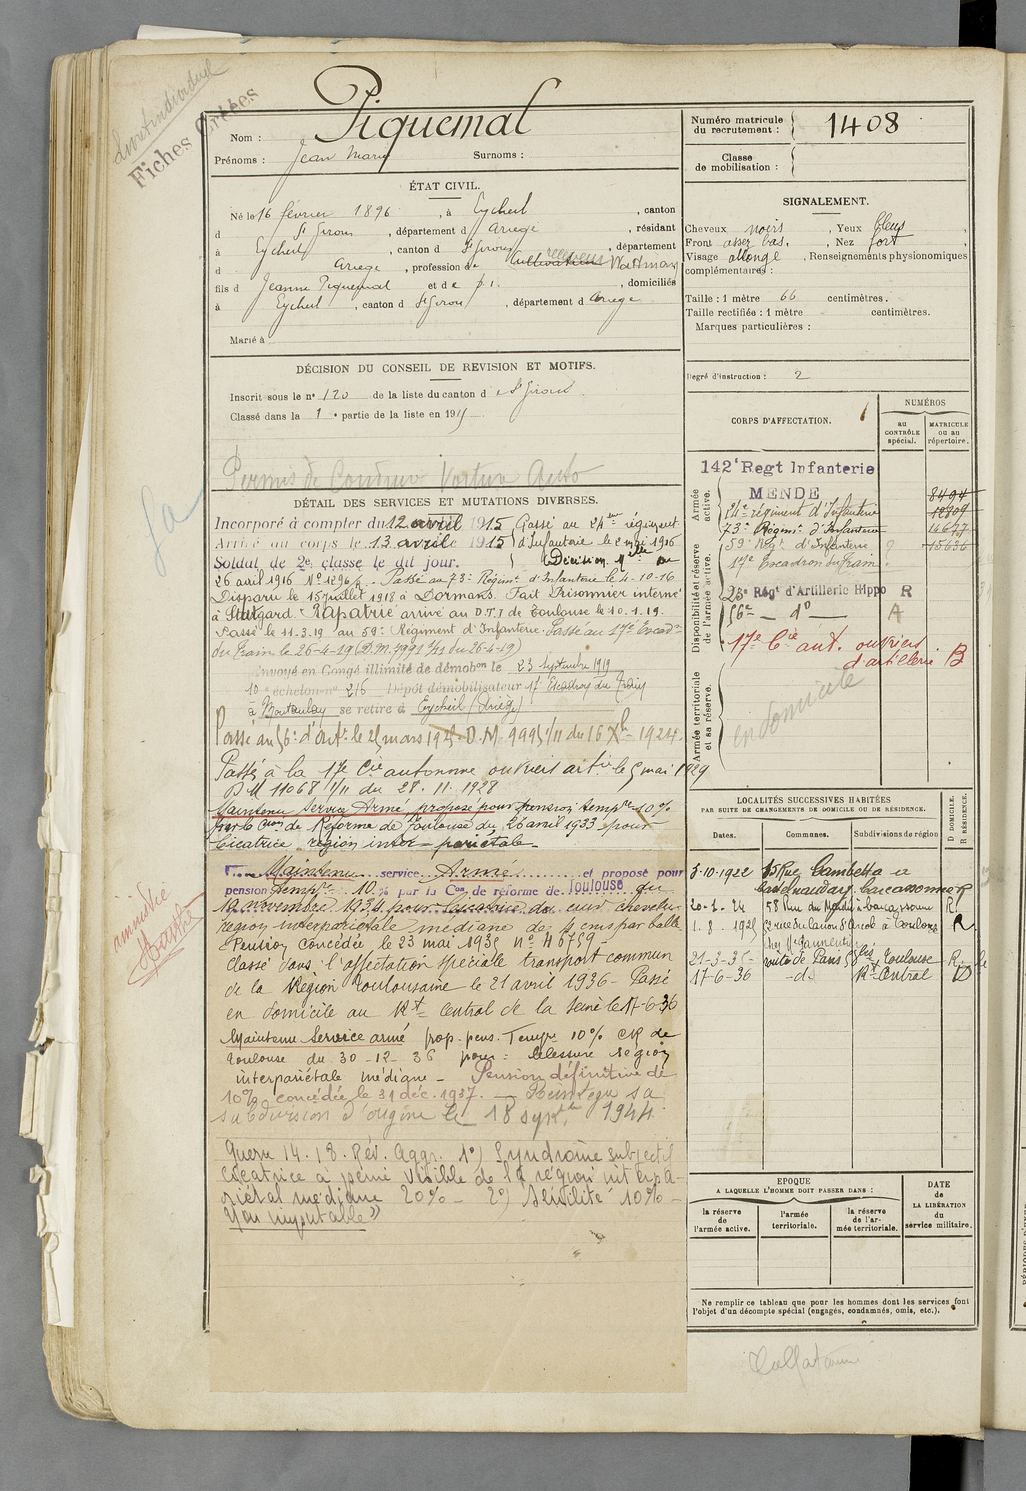 Fiches Créées
Piquemal
Nom :
Prénoms : Jean Marie Surnoms :
Numéro matricule du recrutement : 1408
Classe de mobilisation :
ÉTAT CIVIL.
Né le 16 février 1896, à Eycheil, canton
d St Girons, département d Ariège, résidant
à Eycheil, canton d St Girons, département
d Ariège, profession de cultivateur Wattman
fils d Jeanne Piquemal et de p. i., domiciliés
à Eycheil, canton d St Girons, département d Ariège
Marié à
SIGNALEMENT.
Cheveux noirs, Yeux bleus,
Front assez bas, Nez fort,
Visage allongé, Renseignements physionomiques
complémentaires :
Taille : 1 mètre 66 centimètres.
Taille rectifiée : 1 mètre centimètres.
Marques particulières :
Degré d'instruction : 2
DÉCISION DU CONSEIL DE REVISION ET MOTIFS.
Inscrit sous le n° 120 de la liste du canton d St Girons
Classé dans la 1e partie de la liste en 1915
Permis de Conduire Voiture Auto
DÉTAIL DES SERVICES ET MUTATIONS DIVERSES.
Incorporé à compter du 12 avril 1915 Passé au 24eme régiment
Arrivé au corps le 13 avril 1915 d'Infanterie le 2 mai 1916
Soldat de 2e classe le dit jour. Décision Melle du
26 avril 1916 N° 1296/2. Passé au 73e Régimt d'Infanterie le 4-10-16
Disparu le 15 juillet 1918 à Dormans. Fait Prisonnier interné
à Stutgard. Rapatrié arrivé au D.T.I de Toulouse le 10.1.19.
Passé le 11.3.19 au 59e Régiment d'Infanterie. Passé au 17e Escadon
du Train le 26-4-19
Envoyé en Congé illimité de démobon le 23 Septembre 1919
10e échelon n° 216 Dépôt démobilisateur 17e Escadron du Train
à Montauban se retire à Eycheil (Ariège)
Passé au 56e d'artie le 25 mars 1925 D.M. 9995 1/11 du 16 Xbre 1924.
Passé à la 17e Cie autonome ouvriers artie le 5 mai 1929
D.M 11068 1/11 du 28.11.1928
Maintenu Service Armé, proposé pour pension tempre 10%
par la Con de Réforme de Toulouse du 26 avril 1933 pour
Cicatrice région inter-pariétale
Maintenu service Armé et proposé pour
pension tempre 10 % par la Con de réforme de Toulouse du
19 novembre 1934 pour Cicatrice du cuir chevelu
région interpariétale médiane de 4 cms par balle
Pension concédée le 23 mai 1935 n° 46759
Classé dans l'affectation spéciale transport commun
de la Région Toulousaine le 21 avril 1936 - Passé
en domicile au Rt Central de la Seine le 17-6-36
Maintenu Service armé prop. pens. Tempre 10% CR de
Toulouse du 30-12-36 pour : blessure région
interpariétale médiane - Pension définitive de
10% concédée le 31 déc. 1937. Réintégré sa
subdivision d'origine le 18 septbre 1944
Guerre 14.18. Rév. Aggr. 1°) Syndrome subjectif
Cicatrice à peine visible de la région interpa-
riétal médiane 20% - 2°) Sénilité 10% -
Non imputable »
amnistié
CORPS D'AFFECTATION.
NUMÉROS
AU CONTRÔLE spécial.
MATRICULE OU AU répertoire.
Armée active.
142e Regt Infanterie
MENDE
8494
24e régiment d'Infanterie
73e Régimt d'Infanterie 14677
59e Régt d'Infanterie 15636
Disponibilité et réserve de l'armée active.
17e Escadron du Train.
23e Régt d'Artillerie Hippo R
56e — do — A
17e Cie aut. ouvriers
d'artillerie B
Armée territoriale et sa réserve.
en domicile
LOCALITÉS SUCCESSIVES HABITÉES
PAR SUITE DE CHANGEMENTS DE DOMICILE OU DE RÉSIDENCE.
Dates.
Communes.
Subdivisions de région
D DOMICILE.
R RÉSIDENCE.
5-10-1922 15 Rue Gambetta à
Castelnaudary Carcassonne R
20-2-24 58 Rue du Carcassonne R
1.8.1925 52 rue du Canon d'Arcole à Toulouse R
21-3-35 route de Paris Toulouse R
17-6-36 -do- Rt Central D
EPOQUE
A LAQUELLE L'HOMME DOIT PASSER DANS :
la réserve de l'armée active.
l'armée territoriale.
la réserve de l'armée territoriale.
DATE de LA LIBÉRATION du service militaire.
Ne remplir ce tableau que pour les hommes dont les services font
l'objet d'un décompte spécial (engagés, condamnés, omis, etc.).